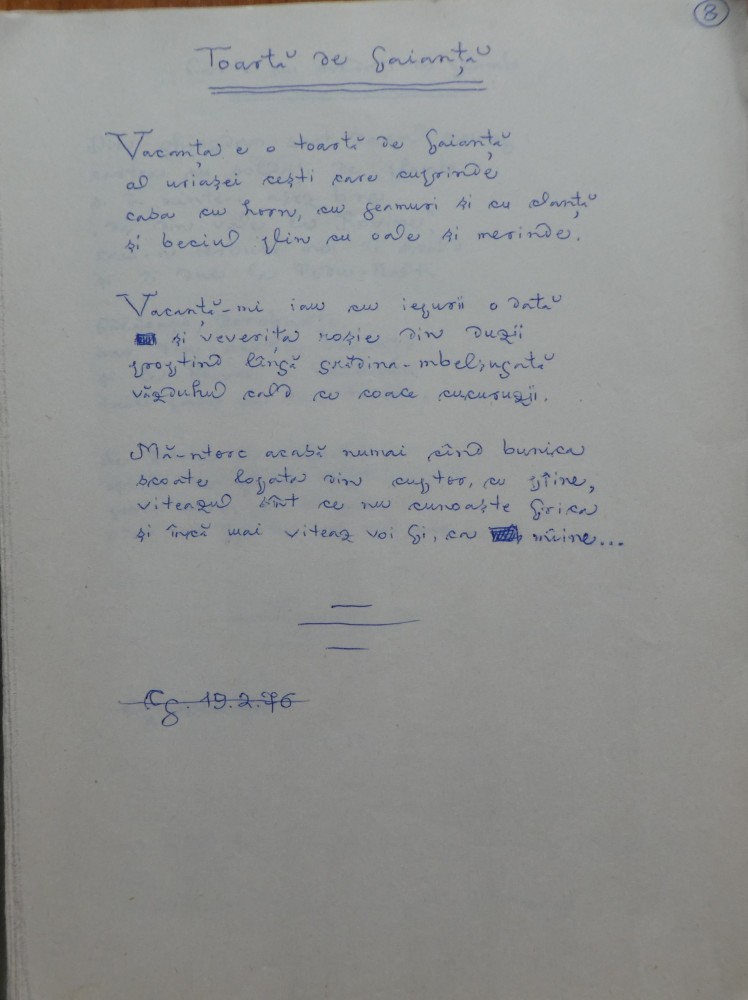 8
Toartă de faianță
Vacanța e o toartă de faianță
al uriașei cești care cuprinde
casa cu horn, cu geamuri și cu clanță
și beciul plin cu oale și merinde.
Vacanță-mi iau cu iepurii o dată
și veverița roșie din duzii
proptind lîngă grădina-mbelșugată
văzduhul cald ce coace cucuruzii.
Mă-ntorc acasă numai cînd bunica
scoate lopata din cuptor, cu pîine,
viteazul sînt ce nu cunoaște frica
și încă mai viteaz voi fi, ca mîine...
Cg. 19.2.76